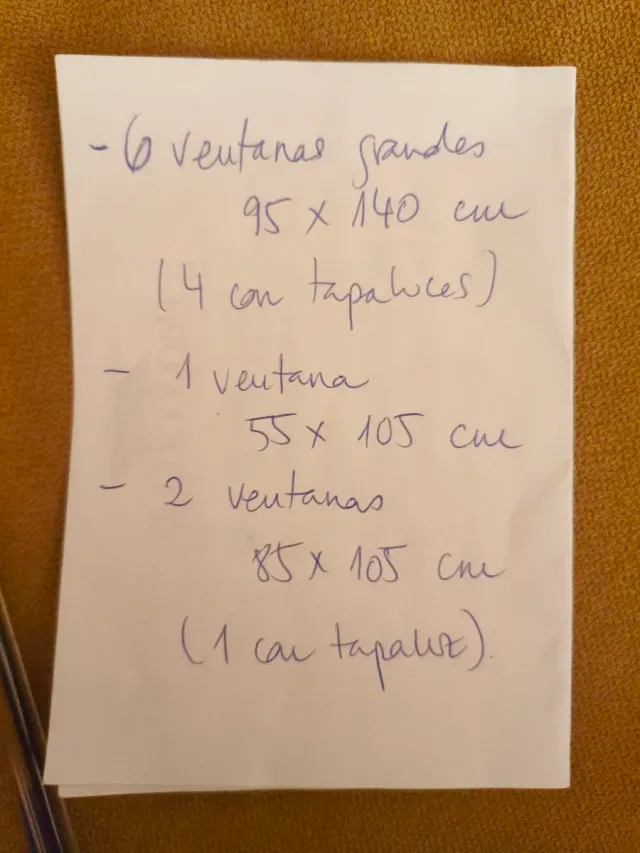 - 6 ventanas grandes
95 x 140 cm
(4 con tapaluces)
- 1 ventana
55 x 105 cm
- 2 ventanas
85 x 105 cm
(1 con tapaluz).